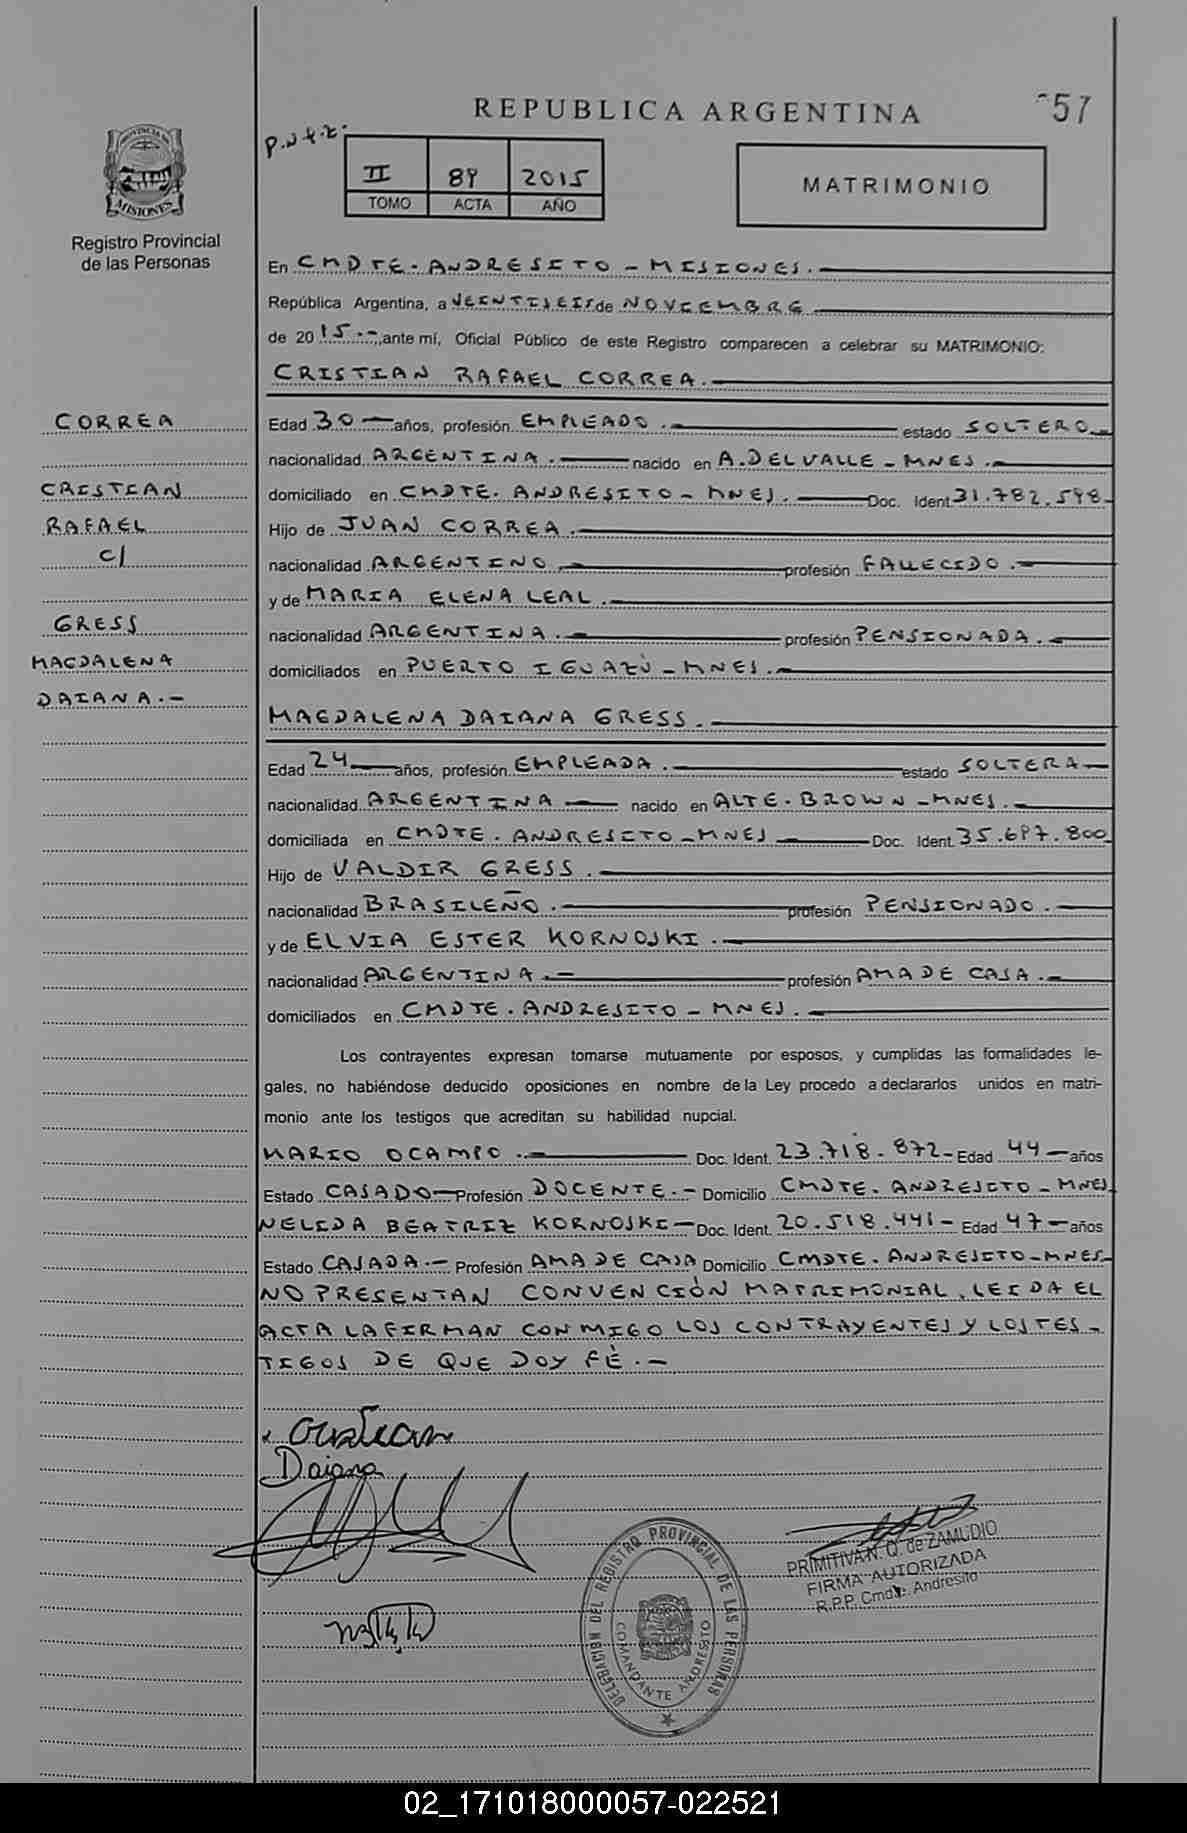 REPUBLICA ARGENTINA
57
P.N.f.2.
II 89 2015
TOMO ACTA AÑO
MATRIMONIO
PROVINCIA DE MISIONES
Registro Provincial
de las Personas
En CMDTE. ANDRESITO - MISIONES.
República Argentina, a VEINTISEIS de NOVIEMBRE
de 2015.-, ante mí, Oficial Público de este Registro comparecen a celebrar su MATRIMONIO:
CRISTIAN RAFAEL CORREA.
CORREA
CRISTIAN
RAFAEL
c/
GRESS
MAGDALENA
DAIANA.-
Edad 30 años, profesión EMPLEADO. estado SOLTERO
nacionalidad ARGENTINA. nacido en A. DEL VALLE - MNES.
domiciliado en CMDTE. ANDRESITO - MNES. Doc. Ident. 31.782.598-
Hijo de JUAN CORREA.
nacionalidad ARGENTINO profesión FALLECIDO.
y de MARIA ELENA LEAL.
nacionalidad ARGENTINA. profesión PENSIONADA.
domiciliados en PUERTO IGUAZÚ - MNES.
MAGDALENA DAIANA GRESS.
Edad 24 años, profesión EMPLEADA. estado SOLTERA
nacionalidad ARGENTINA nacido en ALTE. BROWN - MNES.
domiciliada en CMDTE. ANDRESITO - MNES Doc. Ident. 35.697.800
Hijo de VALDIR GRESS.
nacionalidad BRASILEÑO. profesión PENSIONADO.
y de ELVIA ESTER KORNOSKI.
nacionalidad ARGENTINA. profesión AMA DE CASA.
domiciliados en CMDTE. ANDRESITO - MNES.
Los contrayentes expresan tomarse mutuamente por esposos, y cumplidas las formalidades le-
gales, no habiéndose deducido oposiciones en nombre de la Ley procedo a declararlos unidos en matri-
monio ante los testigos que acreditan su habilidad nupcial.
MARIO OCAMPO. Doc. Ident. 23.718.872- Edad 44 años
Estado CASADO Profesión DOCENTE.- Domicilio CMDTE. ANDRESITO - MNES
NELIDA BEATRIZ KORNOSKI Doc. Ident. 20.518.441- Edad 47 años
Estado CASADA.- Profesión AMA DE CASA Domicilio CMDTE. ANDRESITO - MNES
NO PRESENTAN CONVENCIÓN MATRIMONIAL, LEIDA EL
ACTA LA FIRMAN CONMIGO LOS CONTRAYENTES Y LOS TES-
TIGOS DE QUE DOY FÉ.-
Cristian
Daiana
DELEGACION DEL REGISTRO PROVINCIAL DE LAS PERSONAS
COMANDANTE ANDRESITO
PRIMITIVA N. Q. de ZAMUDIO
FIRMA AUTORIZADA
R.P.P. Cmdte. Andresito
02_171018000057-022521